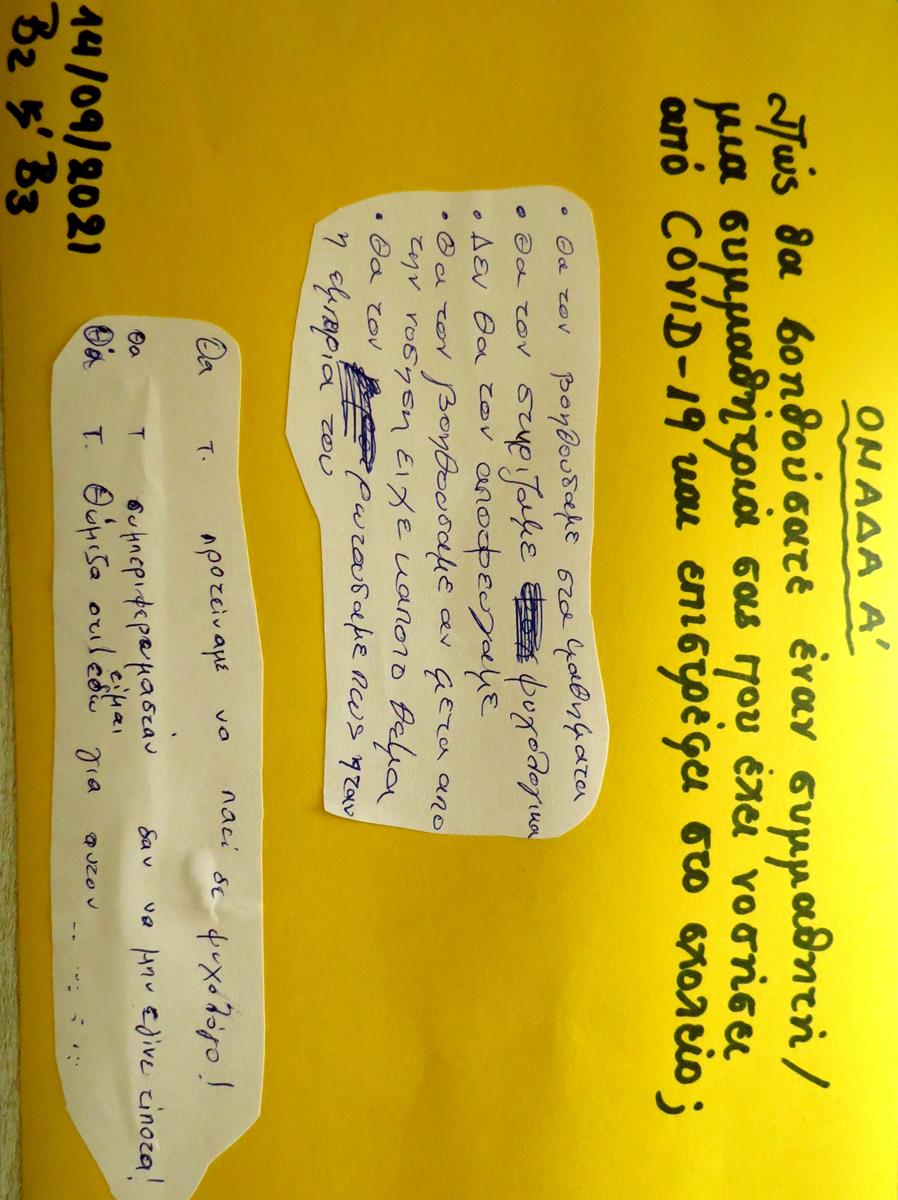 ΟΜΑΔΑ Α'
Πώς θα βοηθούσατε έναν συμμαθητή/
μια συμμαθήτριά σας που έχει νοσήσει
από COVID-19 και επιστρέφει στο σχολείο;
• Θα τον βοηθουσαμε στα μαθηματα
• Θα τον στηριζαμε ψυχολογικα
• Δεν θα τον αποφευγαμε
• Θα τον βοηθουσαμε αν μετα απο
την νοσηση ειχε καποιο θεμα
• Θα τον ρωτουσαμε πως ηταν
η εμπερια του
Θα τ. προτείναμε να παεί σε ψυχολόγο!
θα τ συμπεριφερωμασταν σαν να μην εγινε τίποτα!
Θα τ. Θύμιζα οτι είμαι εδω για αυτον
14/09/2021
Β2 κ' Β3